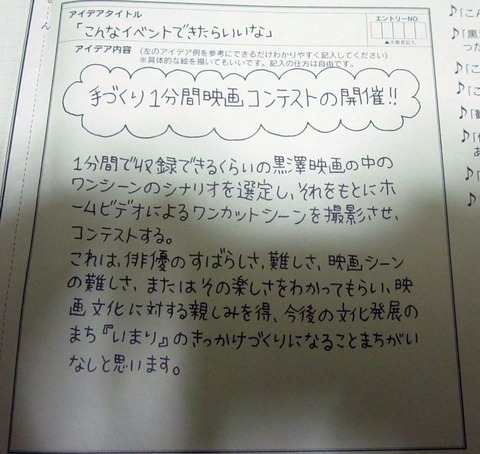 アイデアタイトル
「こんなイベントできたらいいな」
エントリーNO
▲主催者記入
アイデア内容 (左のアイデア例を参考にできるだけわかりやすく記入してください)
※具体的な絵を描いてもいいです。記入の仕方は自由です。
手づくり1分間映画コンテストの開催!!
1分間で収録できるくらいの黒澤映画の中の
ワンシーンのシナリオを選定し、それをもとにホ
ームビデオによるワンカットシーンを撮影させ、
コンテストする。
これは、俳優のすばらしさ、難しさ、映画シーン
の難しさ、またはその楽しさをわかってもらい、映
画文化に対する親しみを得、今後の文化発展の
まち『いまり』のきっかけづくりになることまちがい
なしと思います。
♪「こん
♪「黒
った
♪「こ
♪「こ
♪「
♪「
あ
♪「